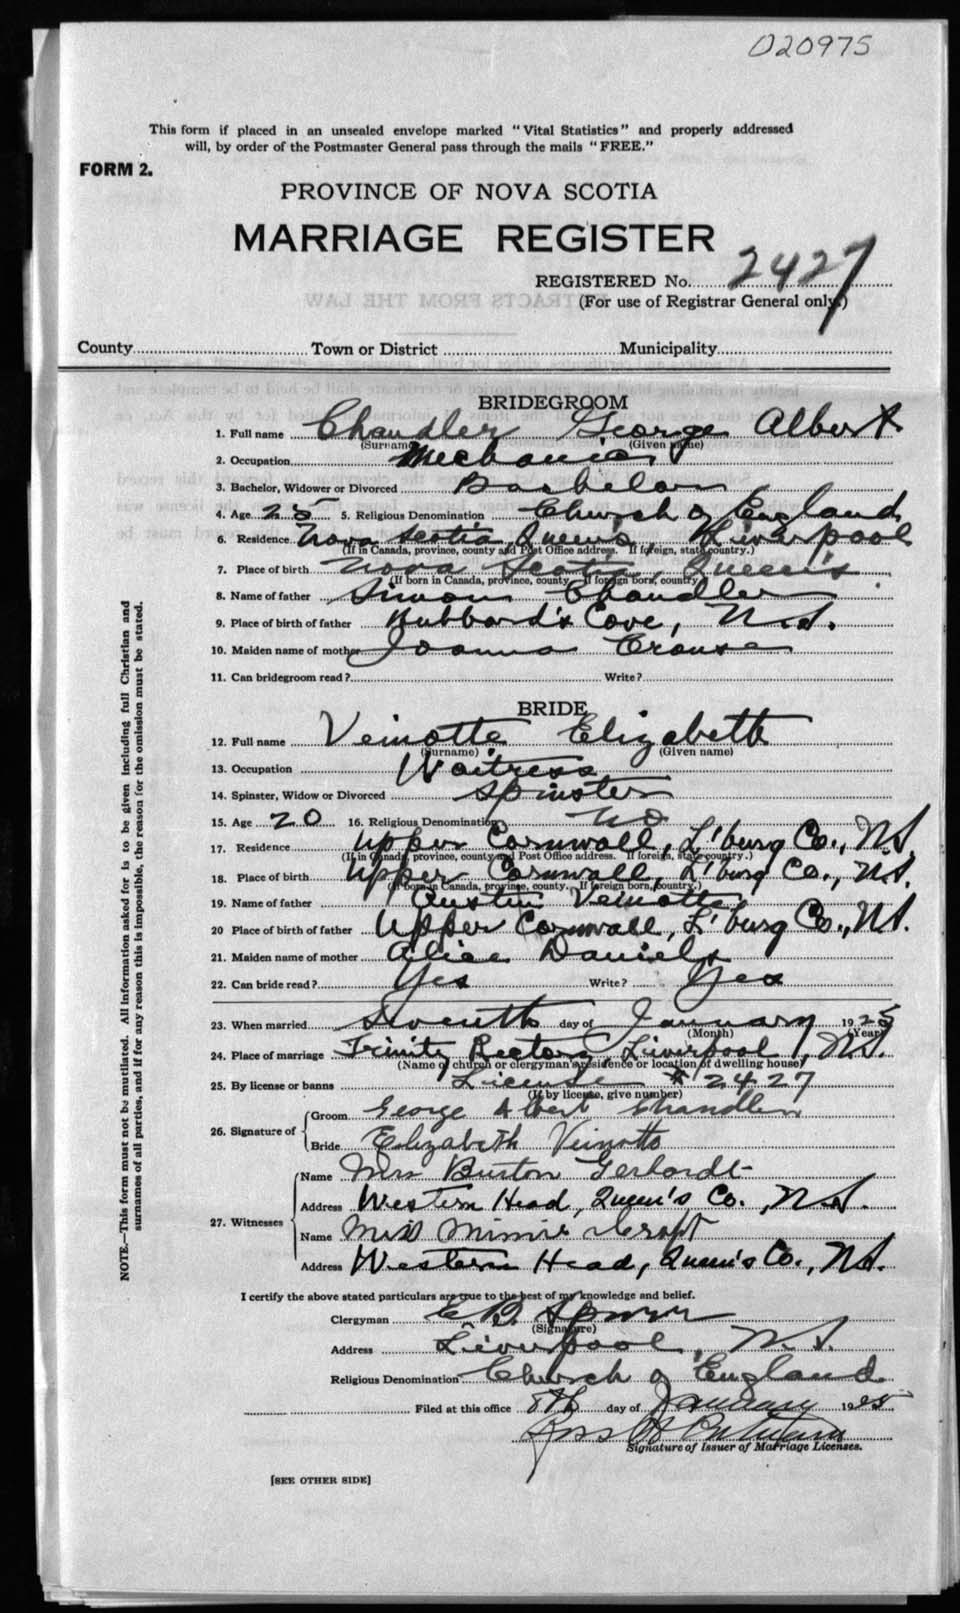 020975
This form if placed in an unsealed envelope marked "Vital Statistics" and properly addressed
will, by order of the Postmaster General pass through the mails "FREE."
FORM 2.
PROVINCE OF NOVA SCOTIA
MARRIAGE REGISTER
REGISTERED No. 2427
(For use of Registrar General only.)
County Town or District Municipality
BRIDEGROOM
1. Full name Chandler George Albert
(Surname) (Given name)
2. Occupation Mechanic
3. Bachelor, Widower or Divorced Bachelor
4. Age 25 5. Religious Denomination Church of England
6. Residence Nova Scotia, Queen's, Liverpool
(If in Canada, province, county and Post Office address. If foreign, state country.)
7. Place of birth Nova Scotia, Queen's
(If born in Canada, province, county. If foreign born, country.)
8. Name of father Simon Chandler
9. Place of birth of father Hubbard's Cove, N.S.
10. Maiden name of mother Joanna Crouse
11. Can bridegroom read? Write?
BRIDE
12. Full name Veinotte Elizabeth
(Surname) (Given name)
13. Occupation Waitress
14. Spinster, Widow or Divorced Spinster
15. Age 20 16. Religious Denomination No
17. Residence Upper Cornwall, L'burg Co., N.S.
(If in Canada, province, county and Post Office address. If foreign, state country.)
18. Place of birth Upper Cornwall, L'burg Co., N.S.
(If born in Canada, province, county. If foreign born, country.)
19. Name of father Austin Veinotte
20 Place of birth of father Upper Cornwall, L'burg Co., N.S.
21. Maiden name of mother Alice Daniels
22. Can bride read? Yes Write? Yes
23. When married Seventh day of January 1925
(Month) (Year)
24. Place of marriage Trinity Rectory, Liverpool, N.S.
(Name of church or clergyman's residence or location of dwelling house)
25. By license or banns License # 2427
(If by license, give number)
26. Signature of Groom George Albert Chandler
Bride Elizabeth Veinotte
27. Witnesses Name Mrs Burton Gerhardt
Address Western Head, Queen's Co., N.S.
Name Miss Minnie
Address Western Head, Queen's Co., N.S.
I certify the above stated particulars are true to the best of my knowledge and belief.
Clergyman E B Spurr
(Signature)
Address Liverpool, N.S.
Religious Denomination Church of England
Filed at this office 8th day of January 1925
Signature of Issuer of Marriage Licenses.
[SEE OTHER SIDE]
NOTE.—This form must not be mutilated. All information asked for is to be given including full Christian and
surnames of all parties, and if for any reason this is impossible, the reason for the omission must be stated.